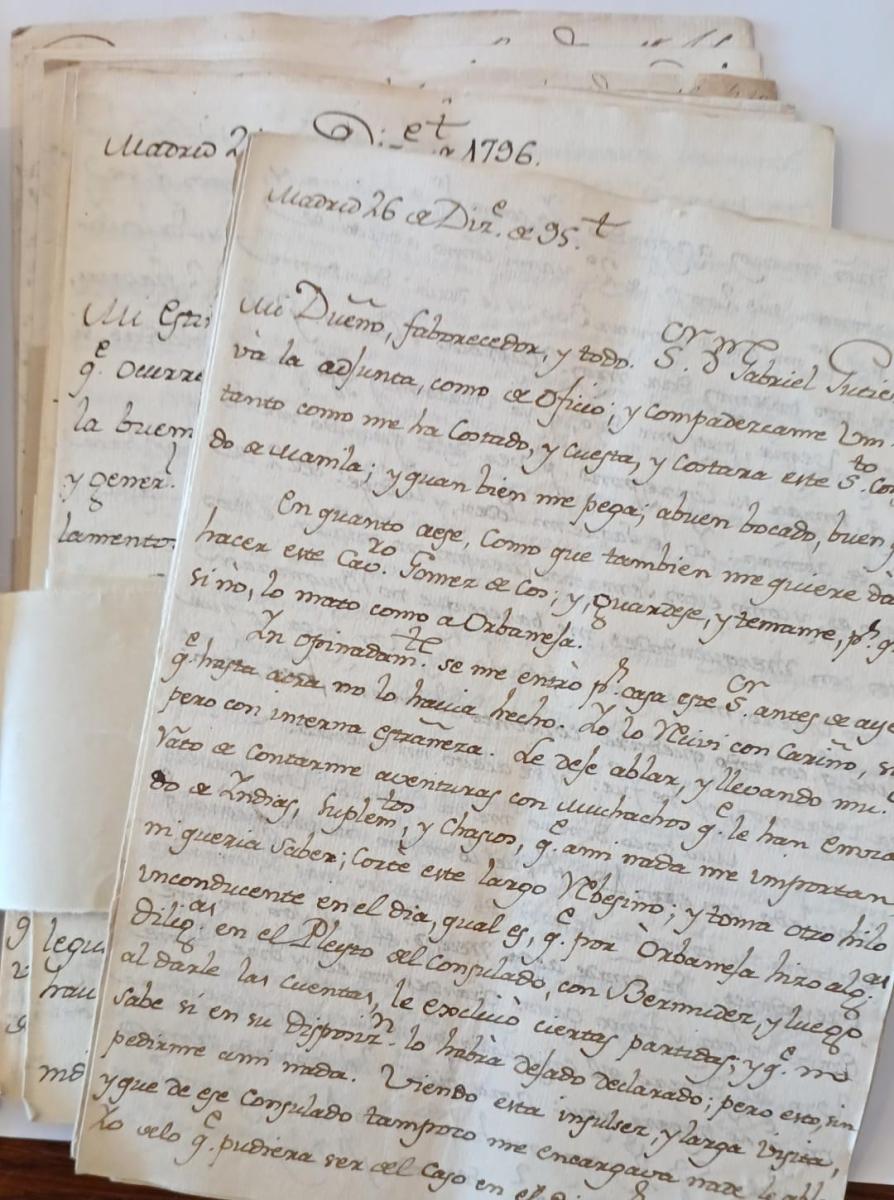 Madrid 2
et
1796.
Mi Esti
q.e ocurre
la buen
y gener.l
lamento.
legu
hau
md
Madrid 26 de Diz.e de 95.
Mi Dueño, faborecedor, y todo. S.or D.n Gabriel Gutier
và la adjunta, como de Oficio; y compadezcame Vm.
tanto como me ha Costado, y cuesta, y Costara este S.to Con
do de Manila; y quan bien me pega; abuen bocado, buen g
En quanto aese, Como que tambien me quiere dà
hacer este Cav.ro Gomez de Cos; y, guardese, y temame, p.r q
si nò, lo mato como a Orbaneja.
Ynopinadam.te se me entrò p.r casa este S.or antes de aye
q.e hasta aora no lo havia hecho. Yo lo Recivi con Cariño, si
pero con interna estrañeza. Le deje ablar, y llevando mu.
Rato de contarme aventuras con Muchachos q.e le han embia
do de Yndias, Suplem.tos, y Chascos, q.e ami nada me importan
ni queria Saber; Cortè este largo Rebesino; y toma otro hilo
inconducente en el dia, qual es, q.e por Orbaneja hizo alg.as
dilig.as en el Pleyto del Consulado, con Bermudez, y luego
al darle las cuentas, le excluiò ciertas partidas; y q.e no
sabe si en su disposiz.n lo habrà dejado declarado; pero esto, sin
pedirme ami nada. Viendo esta insulsez, y larga Visita,
y que de ese Consulado tampoco me encargava nada
Yo delo q.e pudiera ser del Caso en el